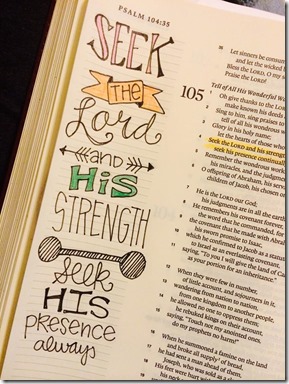 PSALM 104:35
SEEK
THE
Lord
AND
HIS
STRENGTH
Seek
HIS
PRESENCE
always
35 Let sinners be consumed
and let the wicked
Bless the LORD, O my
Praise the LORD!
Tell of All His Wonderful
105 Oh give thanks to the
make known his deeds
2 Sing to him, sing praises to
tell of all his wondrous
3 Glory in his holy name;
let the hearts of those
4 Seek the LORD and his strength
seek his presence continually
5 Remember the wondrous works
his miracles, and the judgments
6 O offspring of Abraham, his servant
children of Jacob, his chosen
7 He is the LORD our God;
his judgments are in all the
8 He remembers his covenant
the word that he commanded, for
9 the covenant that he made with
his sworn promise to Isaac,
10 which he confirmed to Jacob
to Israel as an everlasting covenant,
11 saying, "To you I will give the land of
as your portion for an inheritance."
12 When they were few in number,
of little account, and sojourners in it,
13 wandering from nation to nation,
from one kingdom to another people,
14 he allowed no one to oppress them;
he rebuked kings on their account,
15 saying, "Touch not my anointed ones,
do my prophets no harm!"
16 When he summoned a famine on the land
and broke all supply of bread,
17 he had sent a man ahead of them,
Joseph, who was sold as a